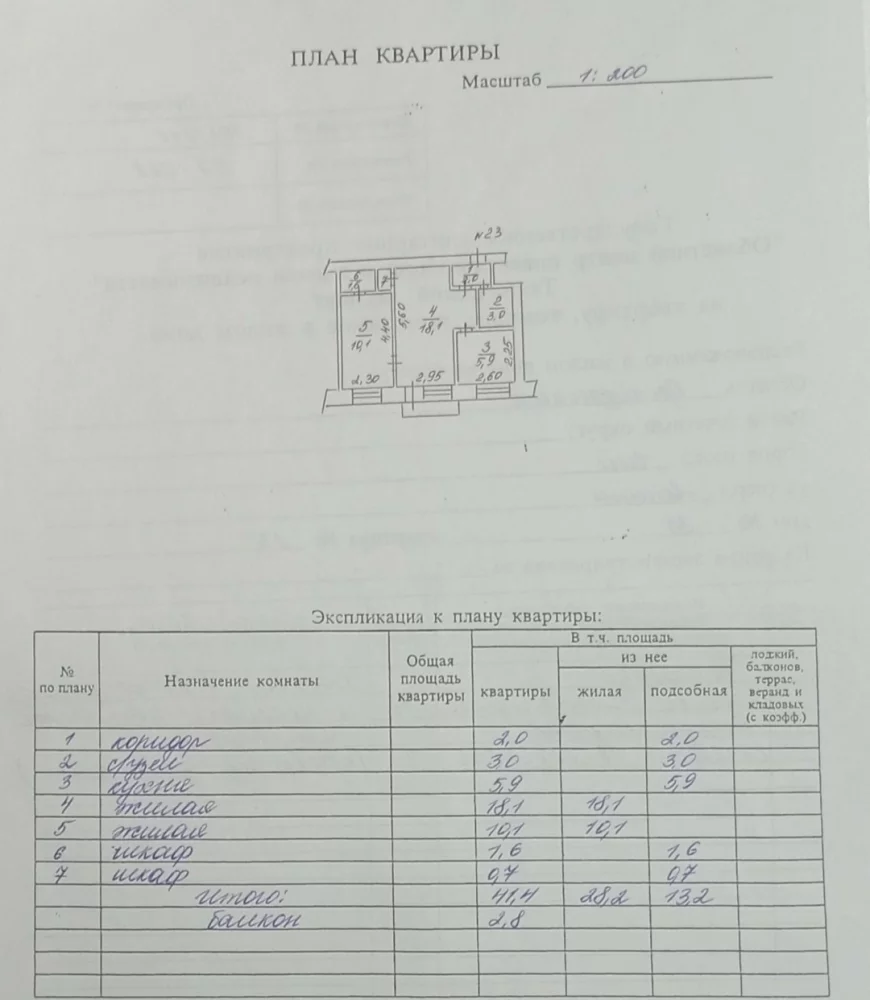 ПЛАН КВАРТИРЫ
Масштаб 1:200
№23
6
1,6
7
1
2,0
2
3,0
5
10,1
4,40
5,60
4
18,1
3
5,9
2,25
2,30
2,95
2,60
Экспликация к плану квартиры:
№ по плану
Назначение комнаты
Общая площадь квартиры
В т.ч. площадь
квартиры
из нее
жилая
подсобная
лоджий, балконов, террас, веранд и кладовых (с коэфф.)
1 коридор 2,0 2,0
2 с/узел 3,0 3,0
3 кухня 5,9 5,9
4 жилая 18,1 18,1
5 жилая 10,1 10,1
6 шкаф 1,6 1,6
7 шкаф 0,7 0,7
Итого: 41,4 28,2 13,2
балкон 2,8